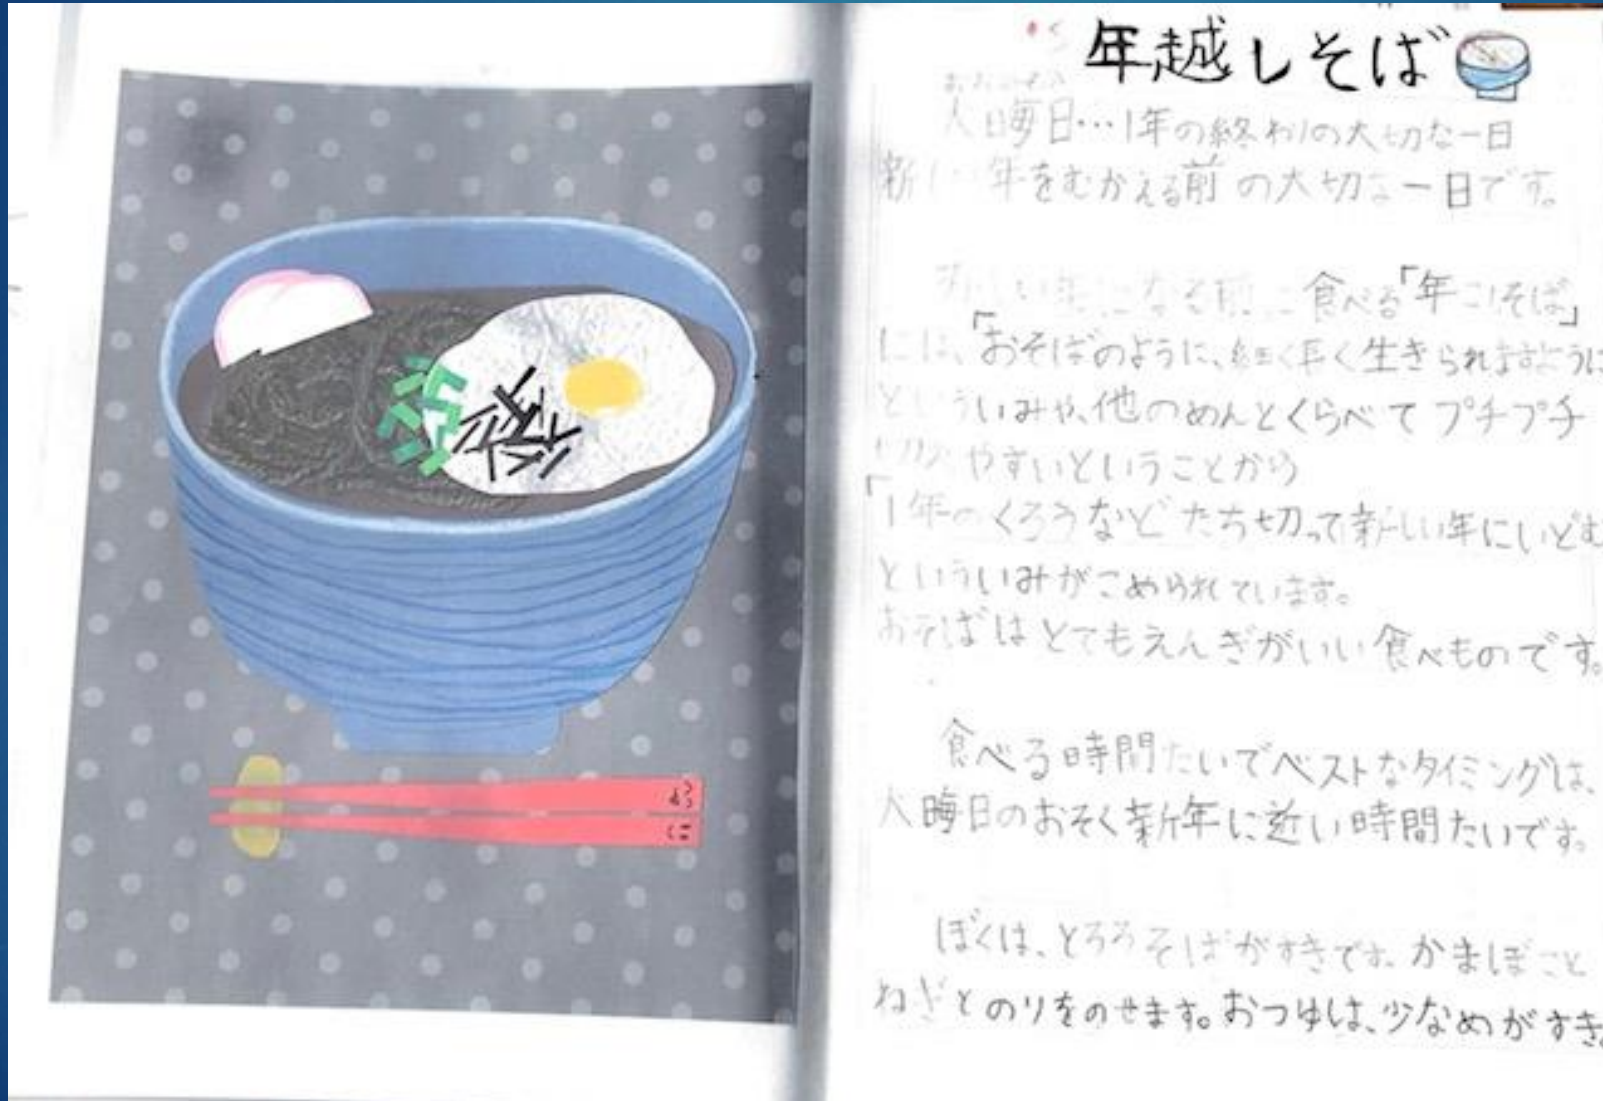 年越しそば
大晦日…1年の終わりの大切な一日
新しい年をむかえる前の大切な一日です。
新しい年になる前に食べる「年こしそば」
には、「おそばのように、細く長く生きられますように
といういみや、他のめんとくらべてプチプチ
やすいということから
「1年のくろうなどたち切って新しい年にいどむ
といういみがこめられています。
おそばはとてもえんぎがいい食べものです。
食べる時間たいでベストなタイミングは、
大晦日のおそく新年に近い時間たいです。
ぼくは、とろろそばがすきです。かまぼこと
ねぎとのりをのせます。おつゆは、少なめがすき。